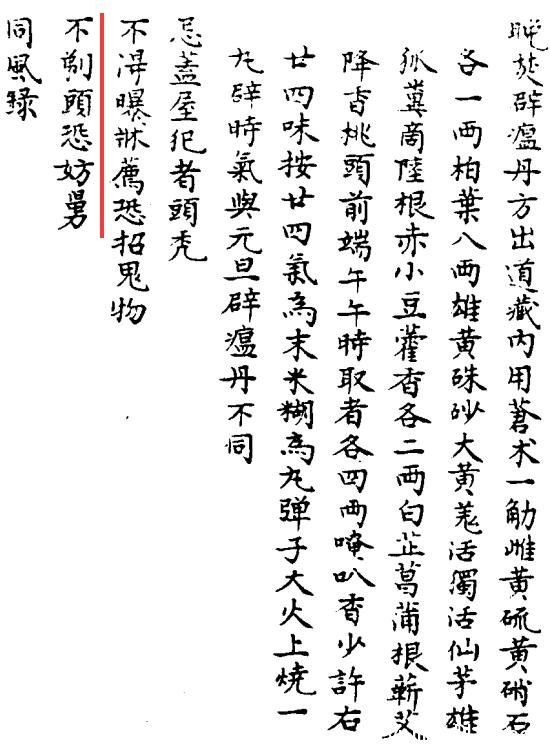 晚焚辟瘟丹方出道藏內用蒼术一觔雌黄硫黄硝石
各一两柏葉八两雄黄硃砂大黄羗活獨活仙茅雄
狐糞啇陸根赤小豆藿香各二两白芷菖蒲根蘄艾
降香桃頭前端午午時取者各四两唵叭香少許右
廿四味按廿四氣為末米糊為丸弹子大火上燒一
丸辟時氣與元旦辟瘟丹不同
忌蓋屋犯者頭秃
不淂曝牀薦恐招鬼物
不剃頭恐妨舅
同風録